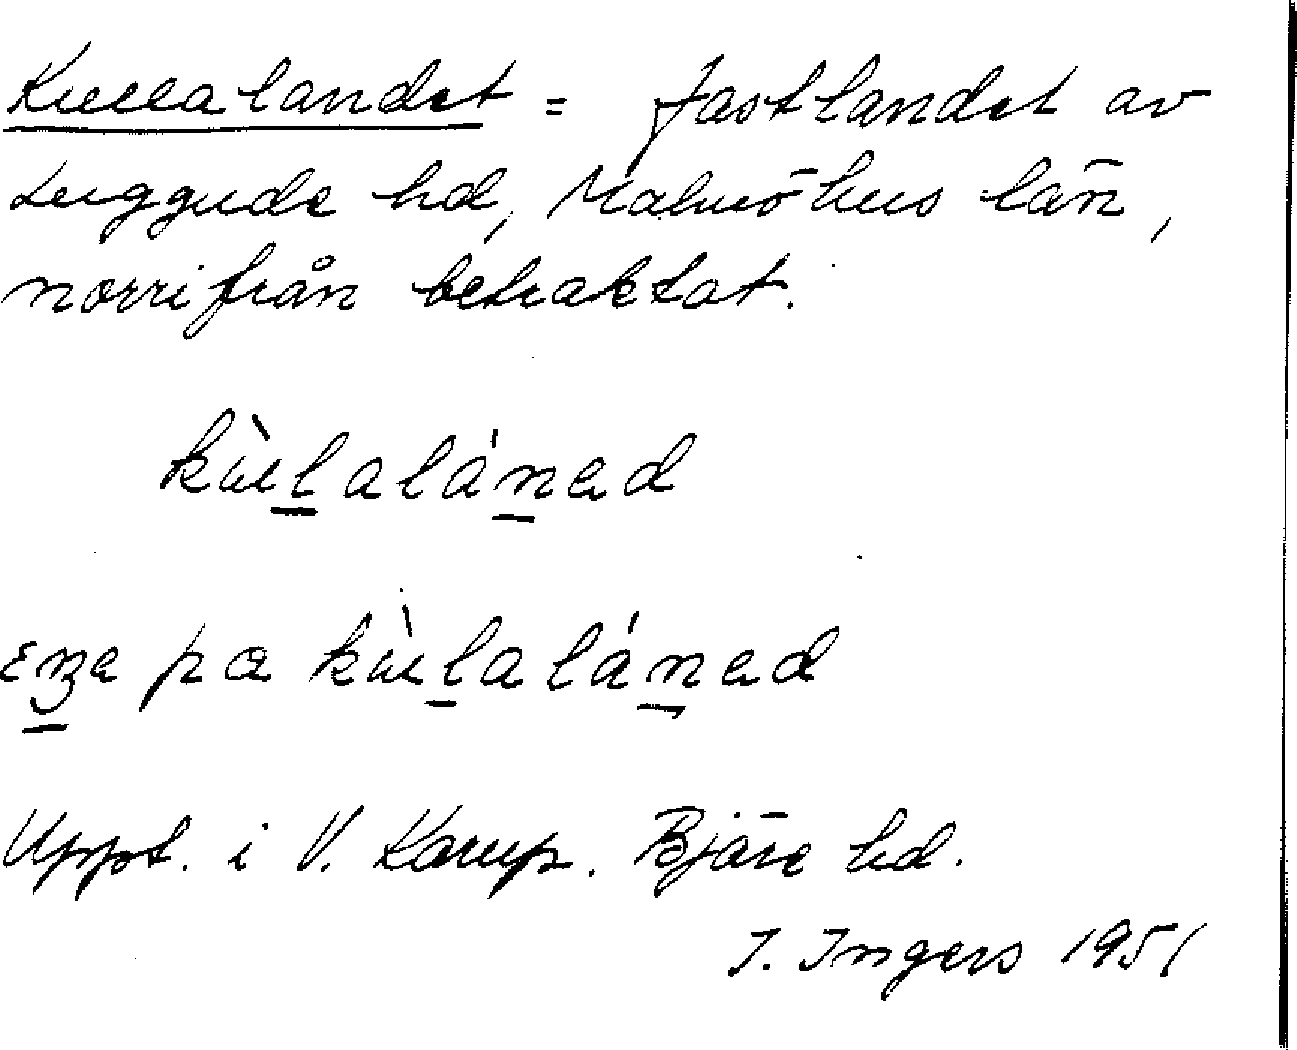 Kullalandet = fastlandet av
Luggude hd, Malmöhus län,
norrifrån betraktat.
kùlaláned
ena pa kùlaláned
Uppt. i V. Karup. Bjäre hd.
I. Ingers 1951